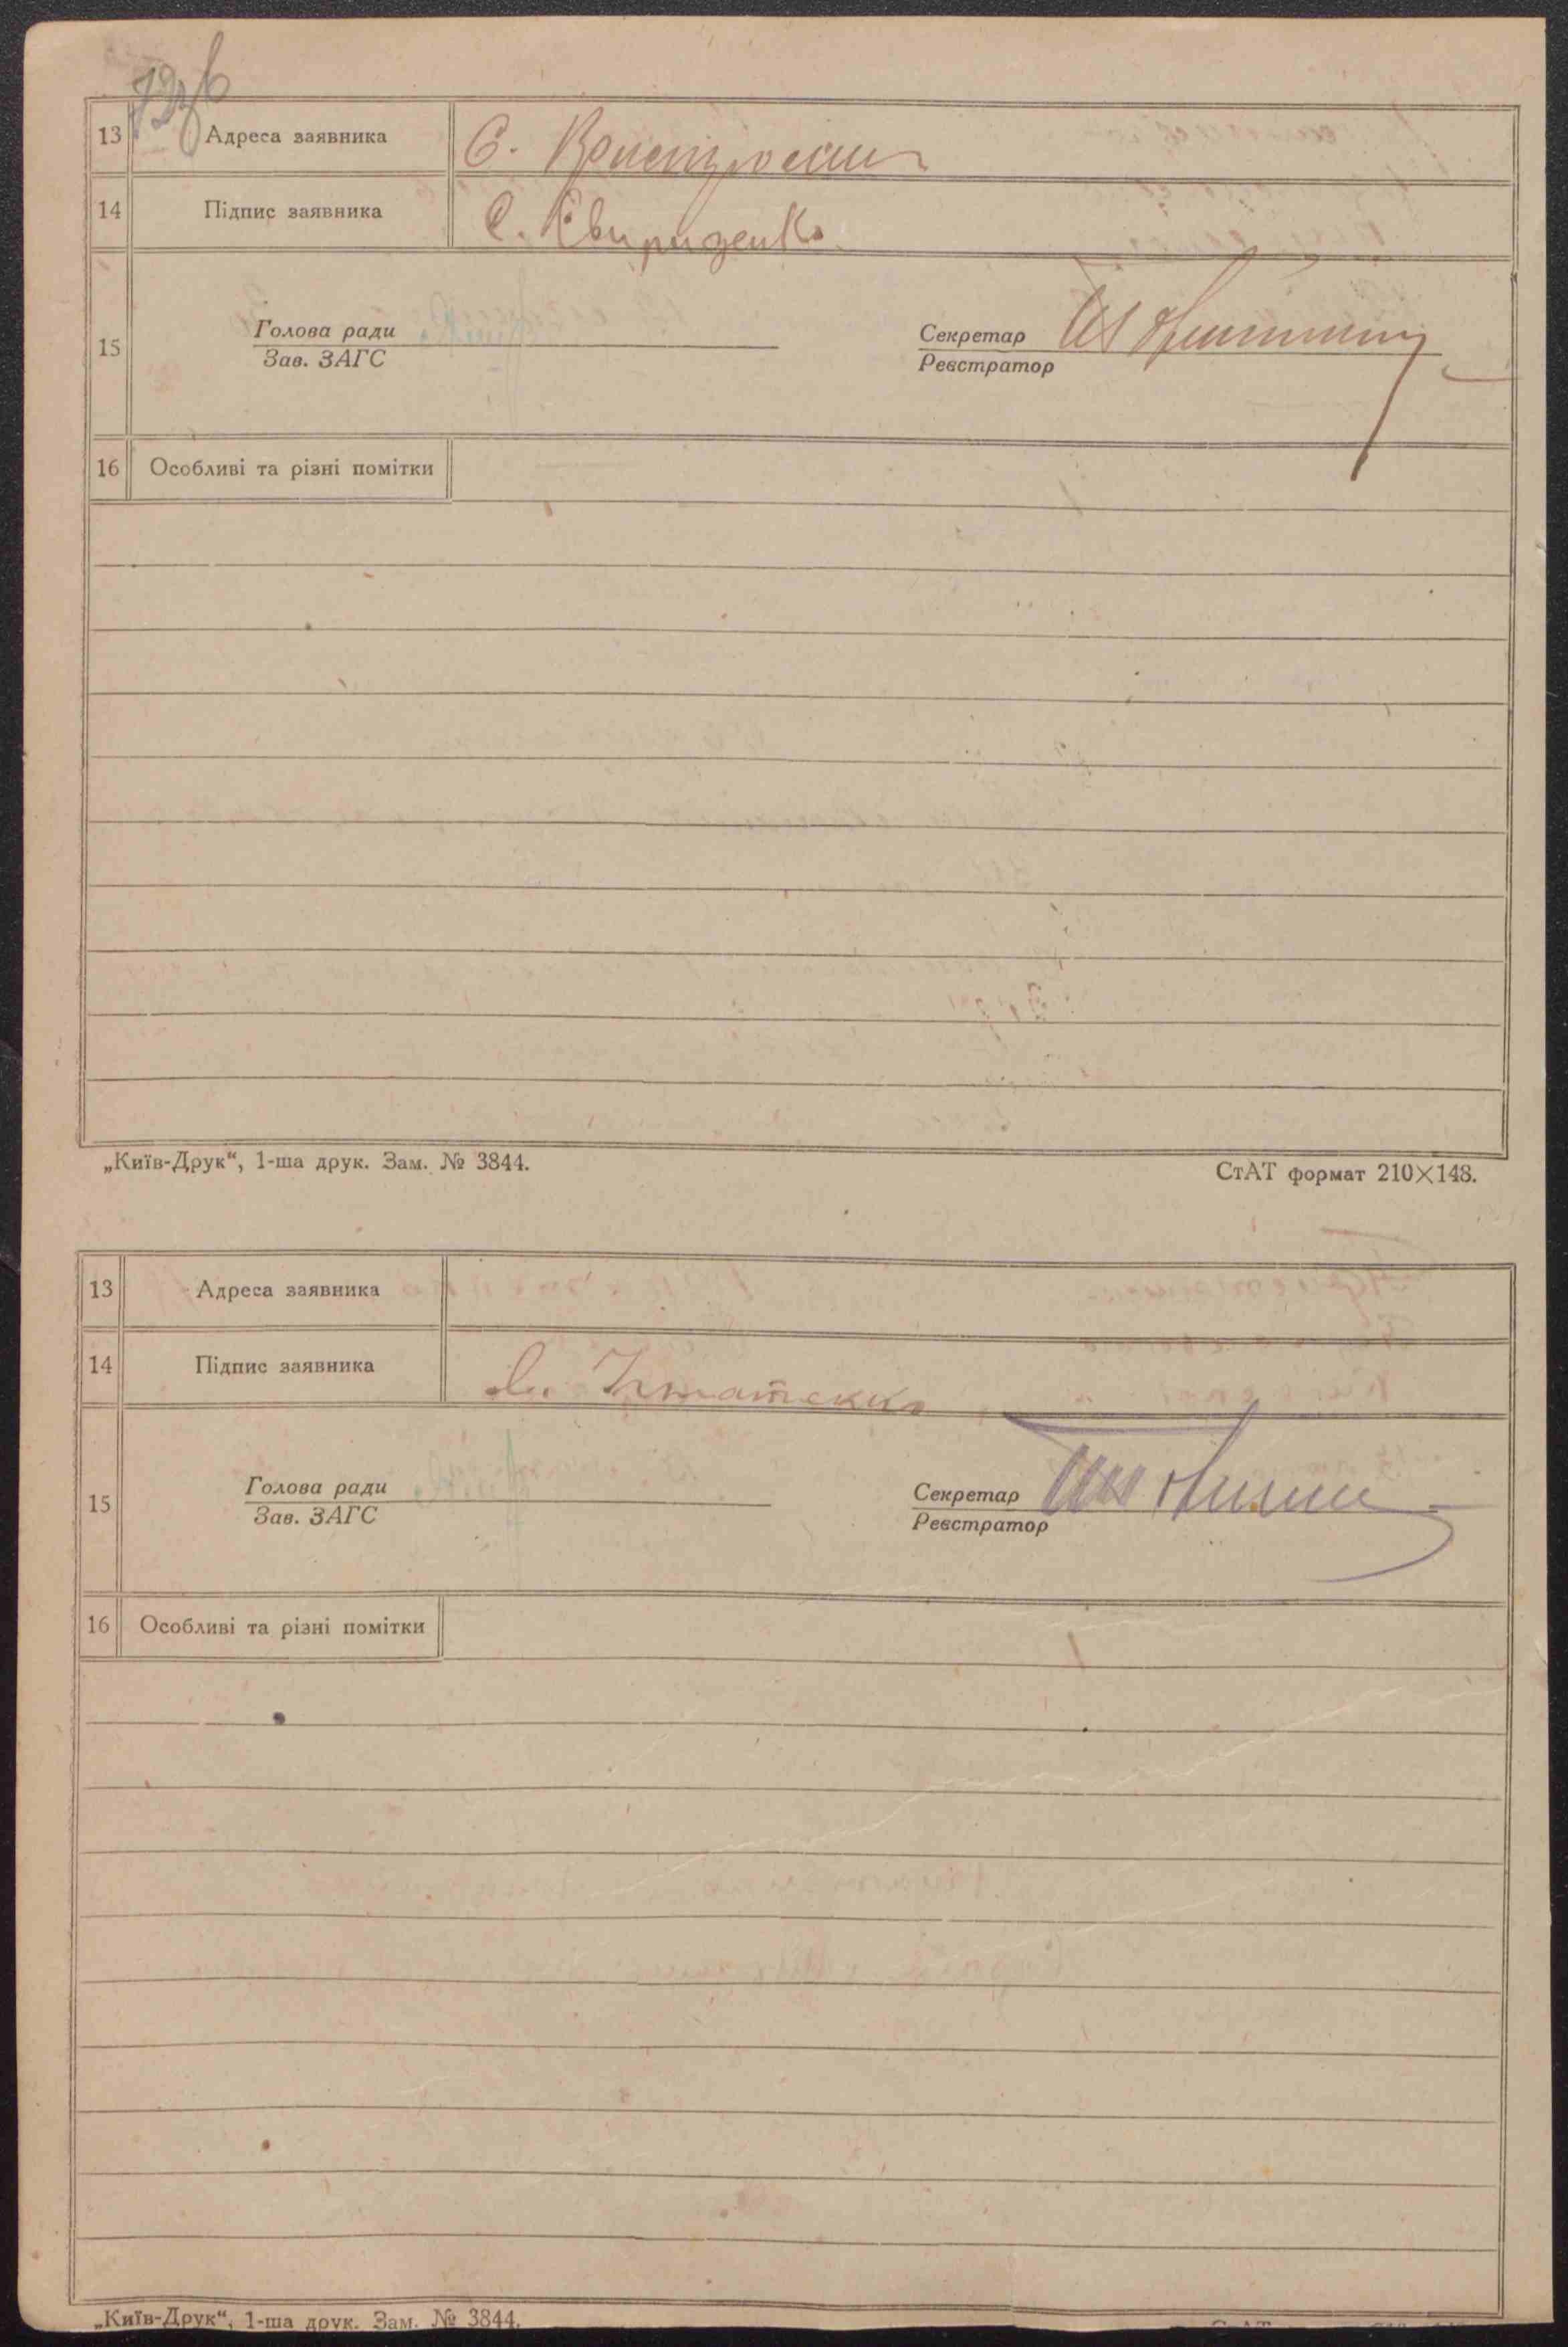 13 Адреса заявника С.
14 Підпис заявника С. Свириденко
15 Голова ради Секретар
Зав. ЗАГС Реєстратор
16 Особливі та різні помітки
„Київ-Друк“, 1-ша друк. Зам. № 3844. СтАТ формат 210×148.
13 Адреса заявника
14 Підпис заявника
15 Голова ради Секретар
Зав. ЗАГС Реєстратор
16 Особливі та різні помітки
„Київ-Друк“, 1-ша друк. Зам. № 3844.